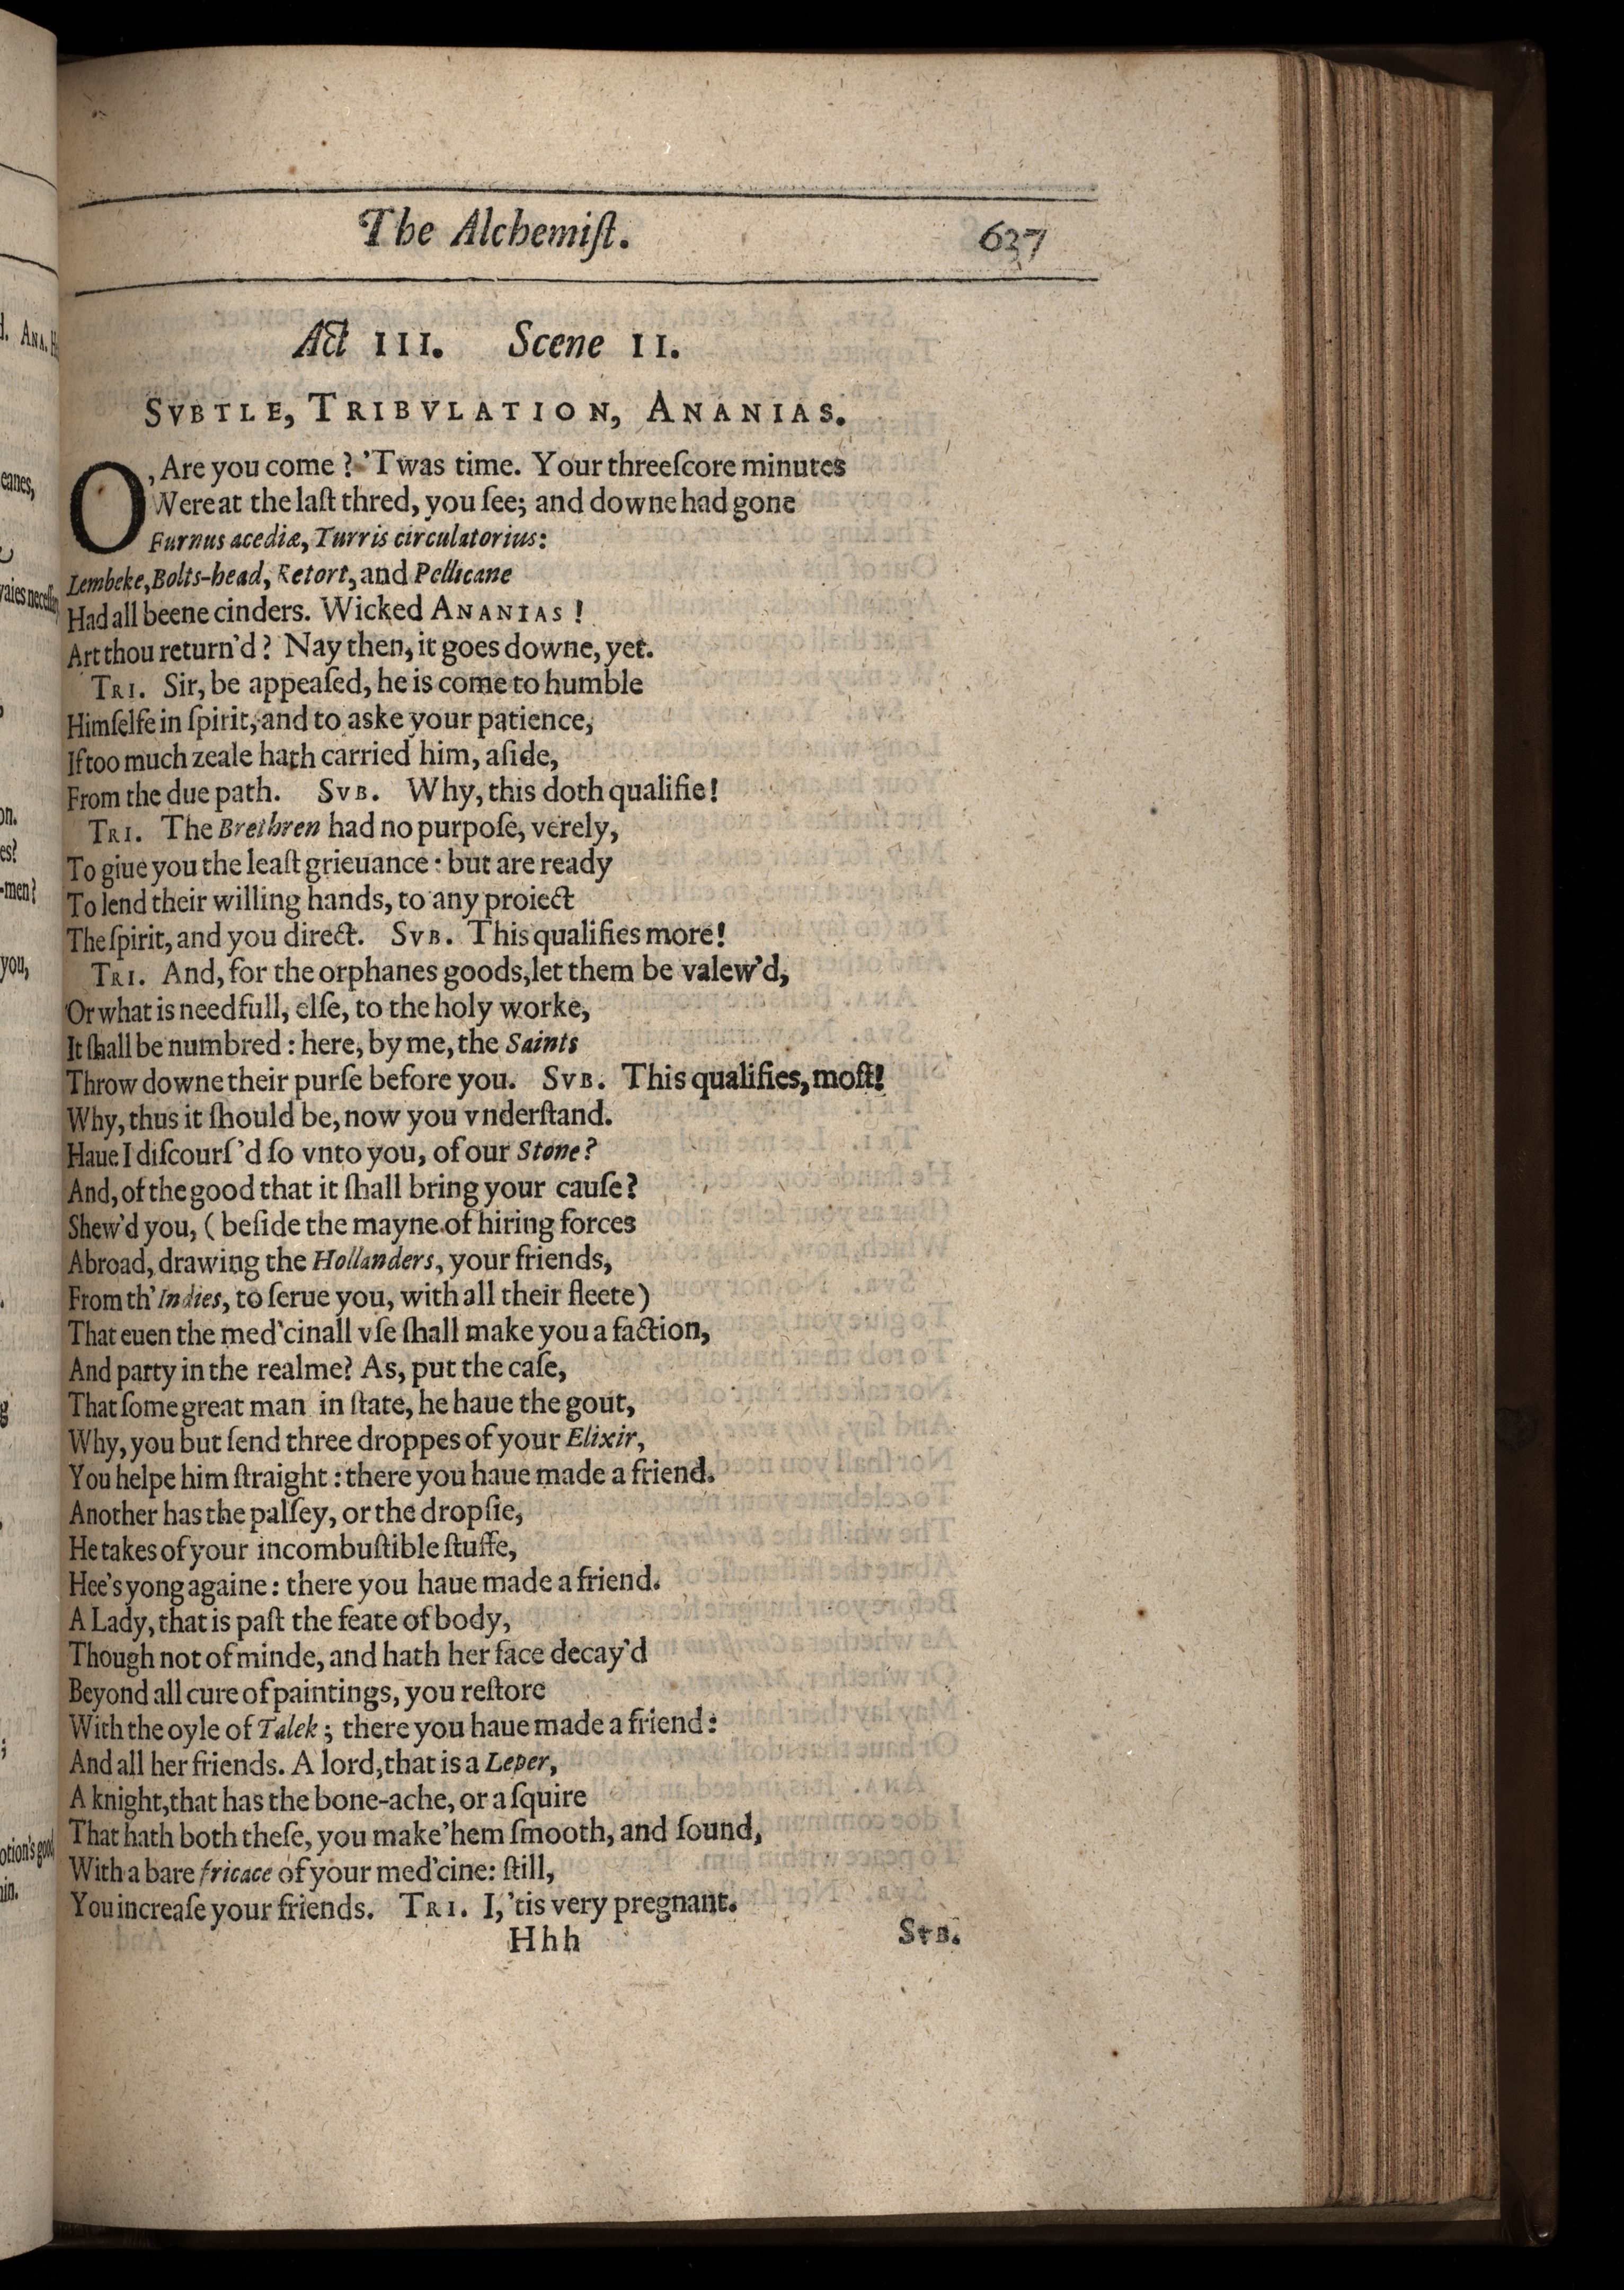 The Alchemiſt. 637
Act III. Scene II.
SVBTLE, TRIBVLATION, ANANIAS.
O, Are you come? 'Twas time. Your threeſcore minutes
Were at the laſt thred, you ſee; and downe had gone
Furnus acediæ, Turris circulatorius:
Lembeke, Bolts-head, Retort, and Pellicane
Had all beene cinders. Wicked ANANIAS!
Art thou return'd? Nay then, it goes downe, yet.
TRI. Sir, be appeaſed, he is come to humble
Himſelfe in ſpirit, and to aske your patience,
If too much zeale hath carried him, aſide,
From the due path. SVB. Why, this doth qualifie!
TRI. The Brethren had no purpoſe, verely,
To giue you the leaſt grieuance: but are ready
To lend their willing hands, to any proiect
The ſpirit, and you direct. SVB. This qualifies more!
TRI. And, for the orphanes goods, let them be valew'd,
Or what is needfull, elſe, to the holy worke,
It ſhall be numbred: here, by me, the Saints
Throw downe their purſe before you. SVB. This qualifies, moſt!
Why, thus it ſhould be, now you vnderſtand.
Haue I diſcourſ'd ſo vnto you, of our Stone?
And, of the good that it ſhall bring your cauſe?
Shew'd you, (beſide the mayne of hiring forces
Abroad, drawing the Hollanders, your friends,
From th' Indies, to ſerue you, with all their fleete)
That euen the med'cinall vſe ſhall make you a faction,
And party in the realme? As, put the caſe,
That ſome great man in ſtate, he haue the gout,
Why, you but ſend three droppes of your Elixir,
You helpe him ſtraight: there you haue made a friend.
Another has the palſey, or the dropſie,
He takes of your incombuſtible ſtuffe,
Hee's yong againe: there you haue made a friend.
A Lady, that is paſt the feate of body,
Though not of minde, and hath her face decay'd
Beyond all cure of paintings, you reſtore
With the oyle of Talek; there you haue made a friend:
And all her friends. A lord, that is a Leper,
A knight, that has the bone-ache, or a ſquire
That hath both theſe, you make 'hem ſmooth, and ſound,
With a bare fricace of your med'cine: ſtill,
You increaſe your friends. TRI. I, 'tis very pregnant.
Hhh SVB.